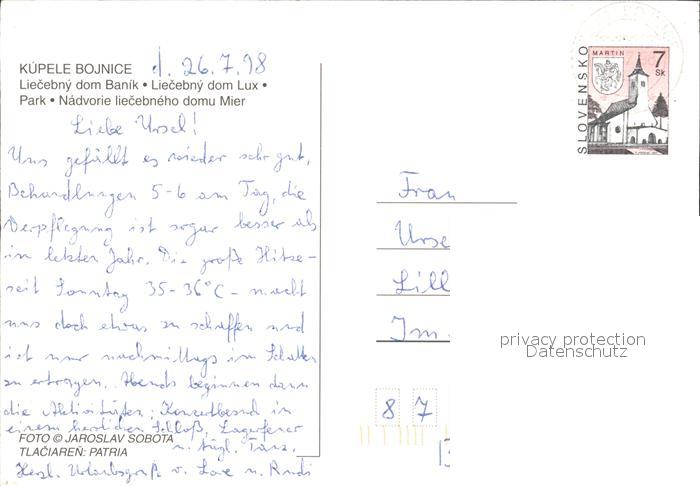 KÚPELE BOJNICE d. 26.7.98
Liečebný dom Baník • Liečebný dom Lux •
Park • Nádvorie liečebného domu Mier
Liebe Ursel!
Uns gefällt es wieder sehr gut,
Behandlungen 5-6 am Tag, die
Verpflegung ist sogar besser als
im letzten Jahr. Die große Hitze -
seit Sonntag 35-36°C - macht
uns doch etwas zu schaffen und
ist nur nachmittags im Schatten
zu ertragen. Abends beginnen dann
die Aktivitäten: Konzertbesuch in
einem herrlichen Schloß, Lagerfeuer
u. tägl. Tanz.
FOTO © JAROSLAV SOBOTA
TLAČIAREŇ: PATRIA
Herzl. Urlaubsgruß v. Love u. Rudi
SLOVENSKO
MARTIN
7
Sk
Frau
Urse
Lill
Im
8 7
privacy protection
Datenschutz